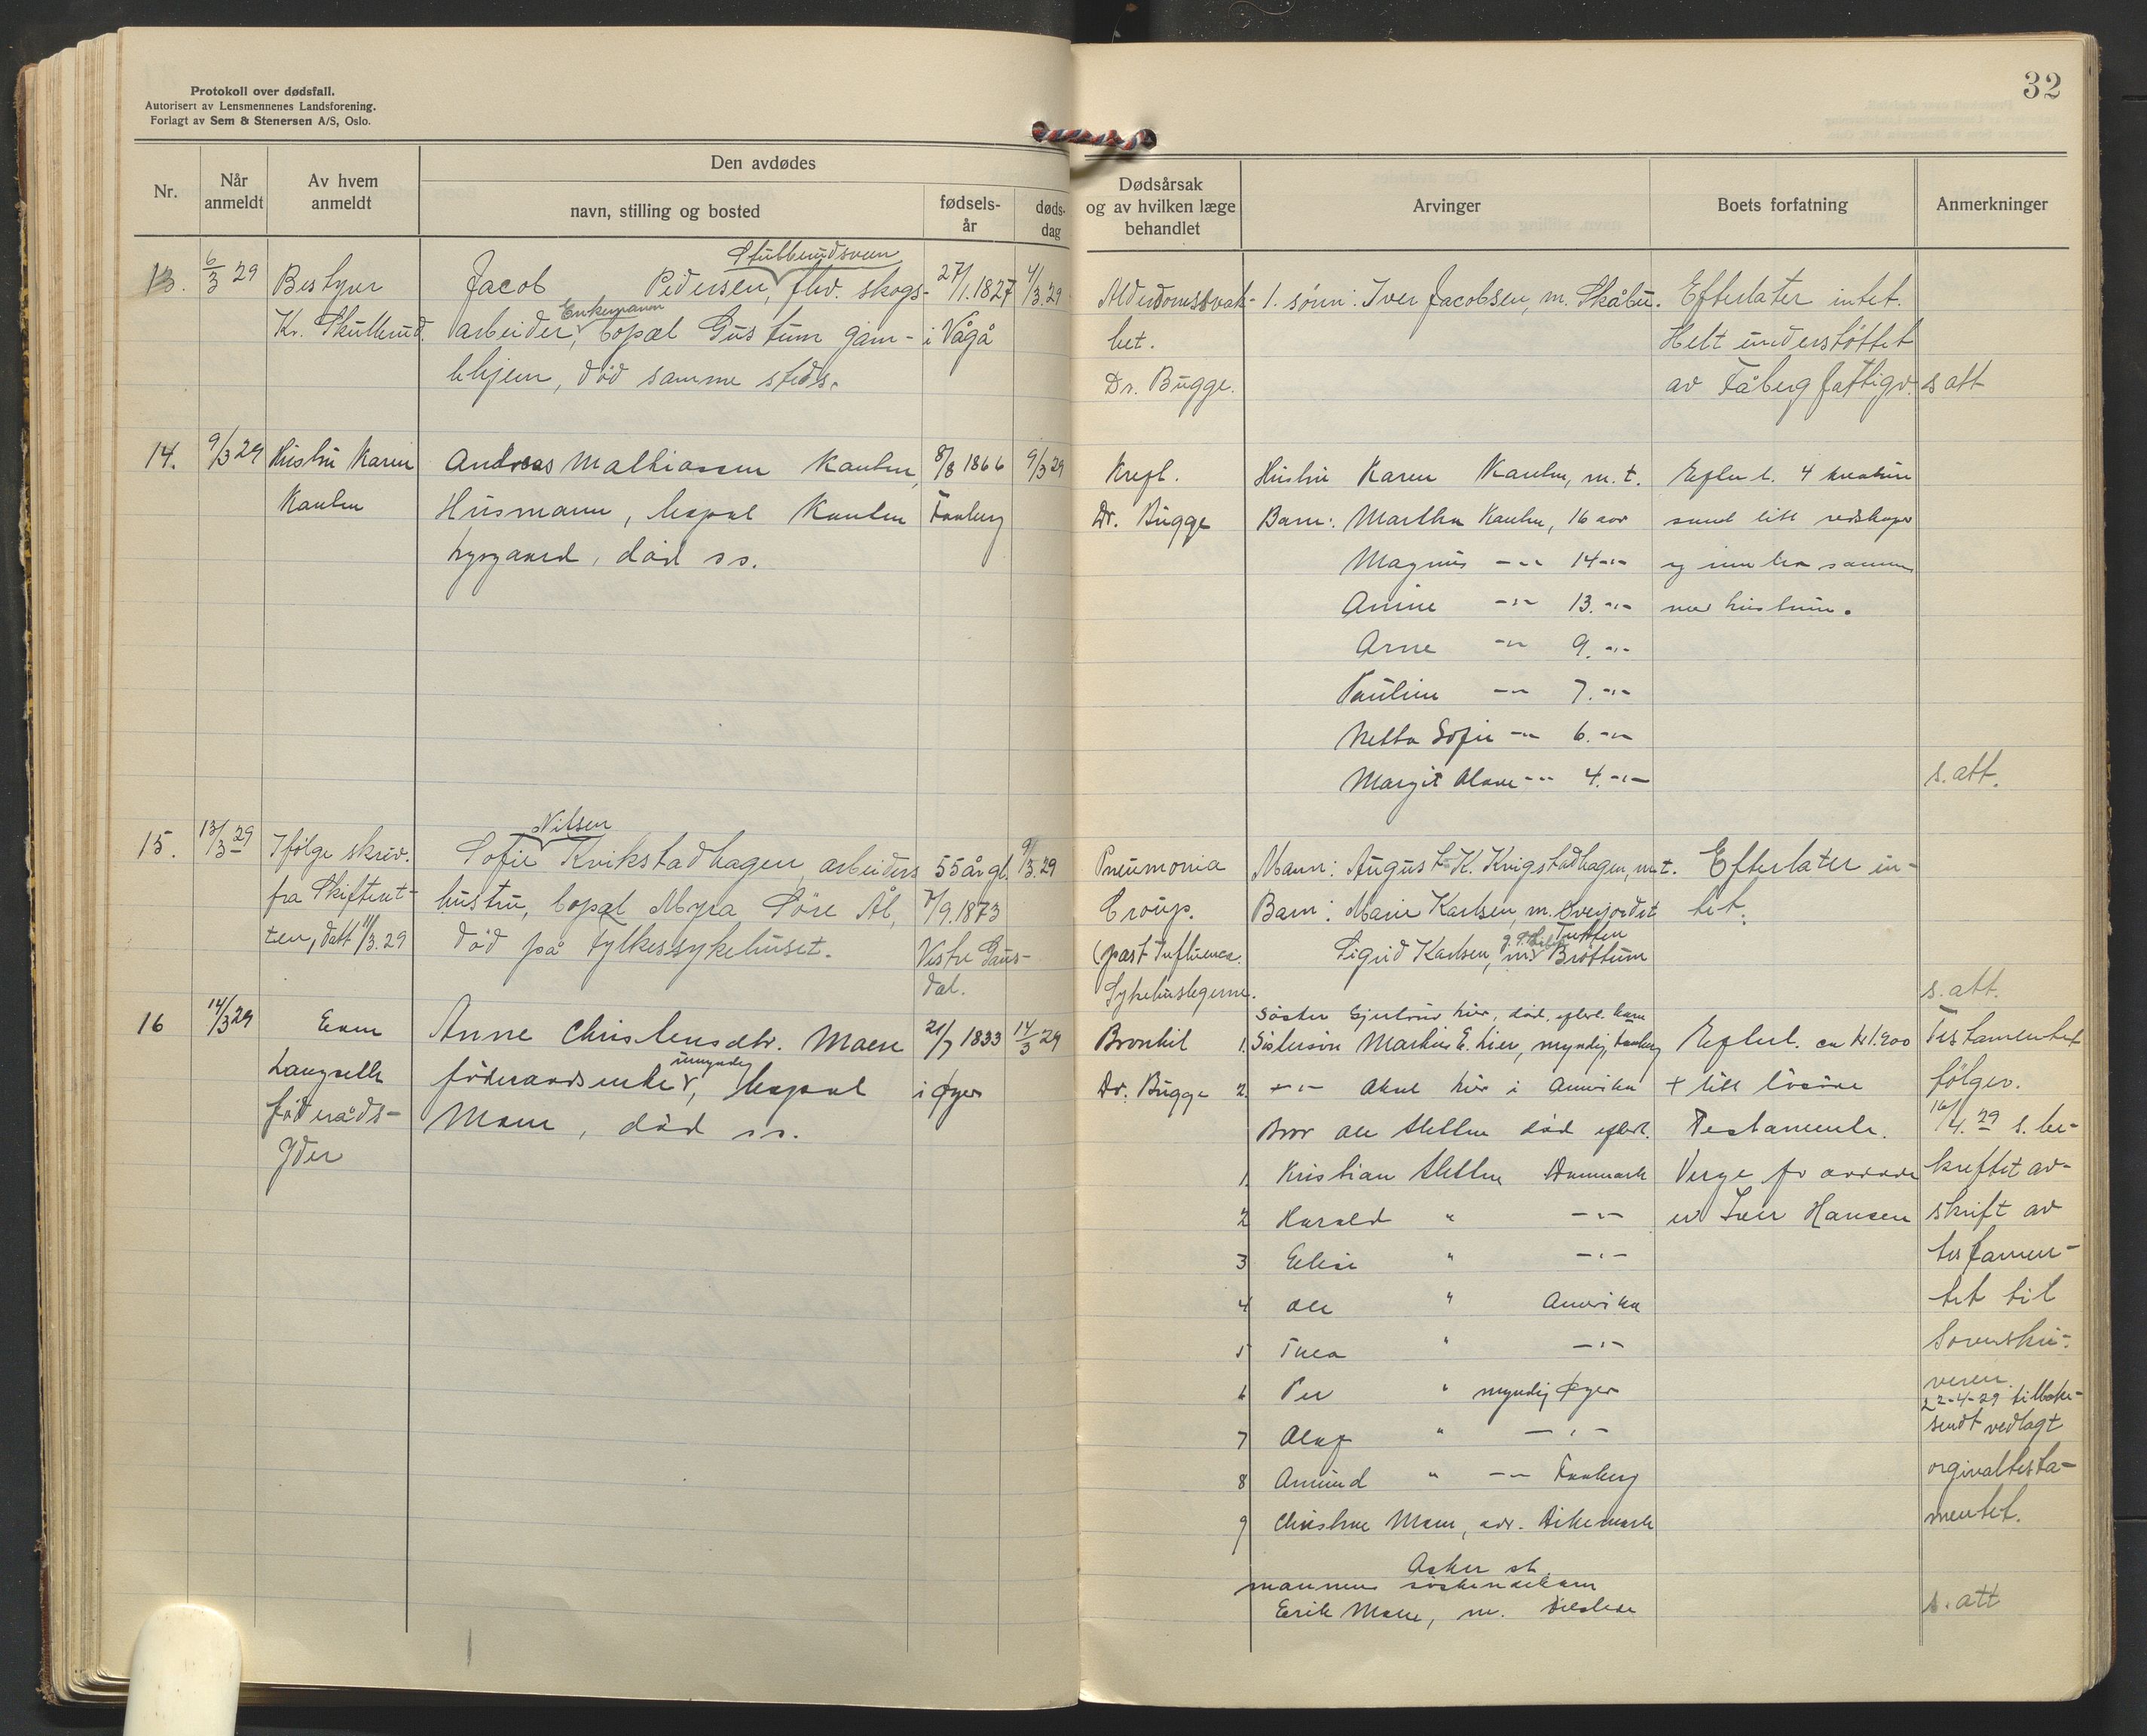 Protokoll over dødsfall.
Autorisert av Lensmennenes Landsforening.
Forlagt av Sem & Stenersen A/S, Oslo.
32
Nr.
Når anmeldt
Av hvem anmeldt
Den avdødes
navn, stilling og bosted
fødsels-år
døds-dag
Dødsårsak og av hvilken læge behandlet
Arvinger
Boets forfatning
Anmerkninger
13.
6/3 29
Bestyrer
Kr. Skullerud.
Stubberudsveen
Jacob Pedersen, fhv. skogs-
Enkemann
arbeider, bopæl Gustum gam-
lehjem, død samme steds.
27/1.1827
i Vågå
4/3.29
Alderdomssvak-
het.
Dr. Bugge.
1. sønn: Iver Jacobsen, m. Skåbu.
Efterlater intet.
Helt understøttet
av Fåberg fattigv.
s att
14.
9/3 29
Hustru Karen
Kanten
Andreas Mathiassen Kanten,
Husmann, bopæl Kanten
bygaard, død ss.
8/8 1866
Faaberg
9/3 29
Kreft.
Dr. Bugge
Hustru Karen Kanten, m. t.
Barn: Martha Kanten, 16 aar
Magnus -"- 14 -"-
Anine -"- 13. -"-
Arne -"- 9. -"-
Pauline -"- 7. -"-
Netta Sofie -"- 6. -"-
Margit -"- 4. -"-
Efterl. 4 kreatur
samt litt redskaper
og innbo sammen
med hustruen.
s. att.
15.
13/3 29
Ifølge skriv.
fra Skifteret-
ten, datt 11/3.29
Nilsen
Sofie Kvikstadhagen, arbeiders
hustru, bopæl Myra Søre Ål,
død på Fylkessykehuset.
55 år gl.
7/9.1873
Vestre Gaus-
dal.
9/3.29
Pneumonia
Croup.
(past Influenca.
Sykehuslegerne.
Mann: August K. Kvigstadhagen, m.t.
Barn: Marie Karlsen, m. Øverjordet
Tretten
Sigrid Karlsen, m. Brøttum
Efterlater in-
tet.
s. att.
16
14/3 29
Even
Langsett
føderåds-
yder
Anne Christensdtr. Moen
umyndig
føderaadsenke, bopæl
Moen, død ss.
21/7 1833
i Øyer
14/3 29
Bronkit
Dr. Bugge
Søster Gjertrud Lier, død, efterl. barn
1. Søstersøn Martius E. Lier, myndig, Faaberg
2. -"- Lier i Amerika
Bror Ole Sletten død efterl.
1. Kristian Sletten Danmark
2 Harald " -"-
3 Elise " -"-
4 Ole " Amerika
5 Thea " -"-
6 Per " myndig Øyer
7 Olaf " -"-
8 Amund " -"- Faaberg
9 Christine Moen, adr. Dikemark
Asker st.
mannens søskendebarn
Erik Moen, m.
Efterl. ca kr 1.900
+ litt løsøre
Testamente.
Verge for avdøde
er Iver Hansen
Testamentet
følger.
16/4. 29 s. be-
kreftet av-
skrift av
testamen-
tet til
Sorenskri-
veren.
22-4-29 tilbake-
sendt vedlagt
orginaltesta-
mentet.
s. att